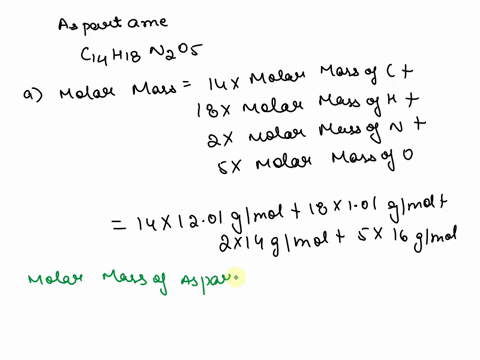 Aspartame
C14H18N2O5
a) Molar Mass = 14 x Molar Mass of C +
18 x Molar Mass of H +
2 x Molar Mass of N +
5 x Molar Mass of O
= 14 x 12.01 g/mol + 18 x 1.01 g/mol +
2 x 14 g/mol + 5 x 16 g/mol
Molar Mass of Aspar